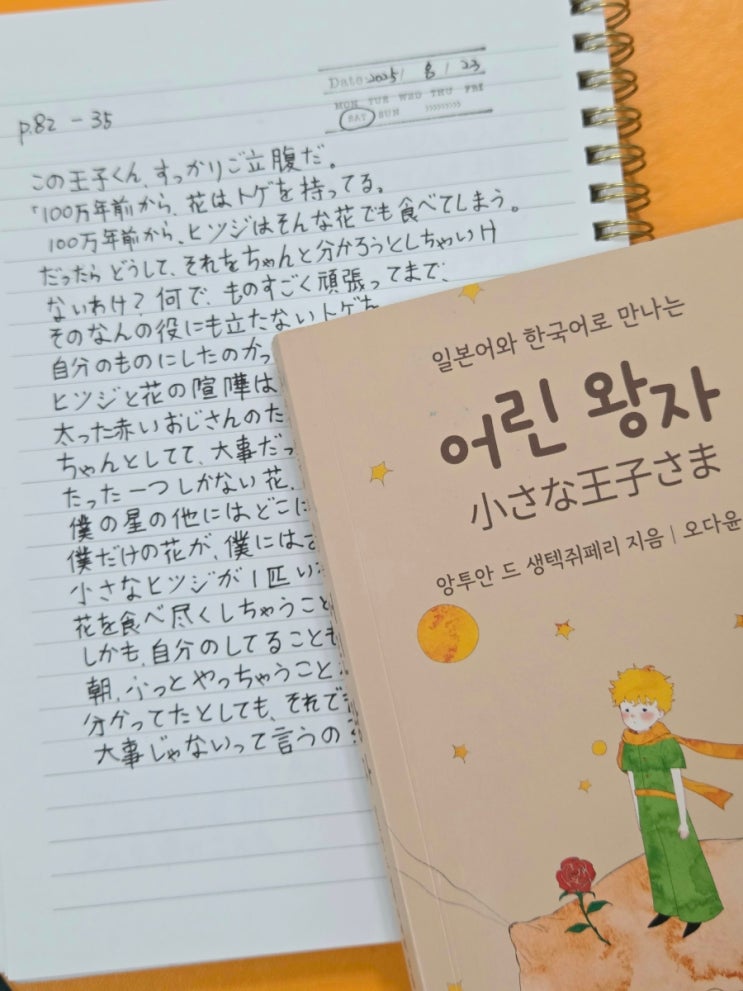 Date 2025 / 8 / 23
MON TUE WED THU FRI
SAT SUN
p.82 - 35
この王子くん、すっかりご立腹だ。
「100万年前から、花はトゲを持ってる。
100万年前から、ヒツジはそんな花でも食べてしまう。
だったらどうして、それをちゃんと分かろうとしちゃいけ
ないわけ？何で、ものすごく頑張ってまで、
そのなんの役にも立たないトゲを
自分のものにしたのかっ
ヒツジと花の喧嘩は
太った赤いおじさんのた
ちゃんとしてて、大事だっ
たった一つしかない花、
僕の星の他にはどこに
僕だけの花が、僕には
小さなヒツジが1匹い
花を食べ尽くしちゃうこと
しかも、自分のしてることも
朝、ふっとやっちゃうこと
分かってたとしても、それで
大事じゃないって言うの
일본어와 한국어로 만나는
어린 왕자
小さな王子さま
앙투안 드 생텍쥐페리 지음 | 오다윤